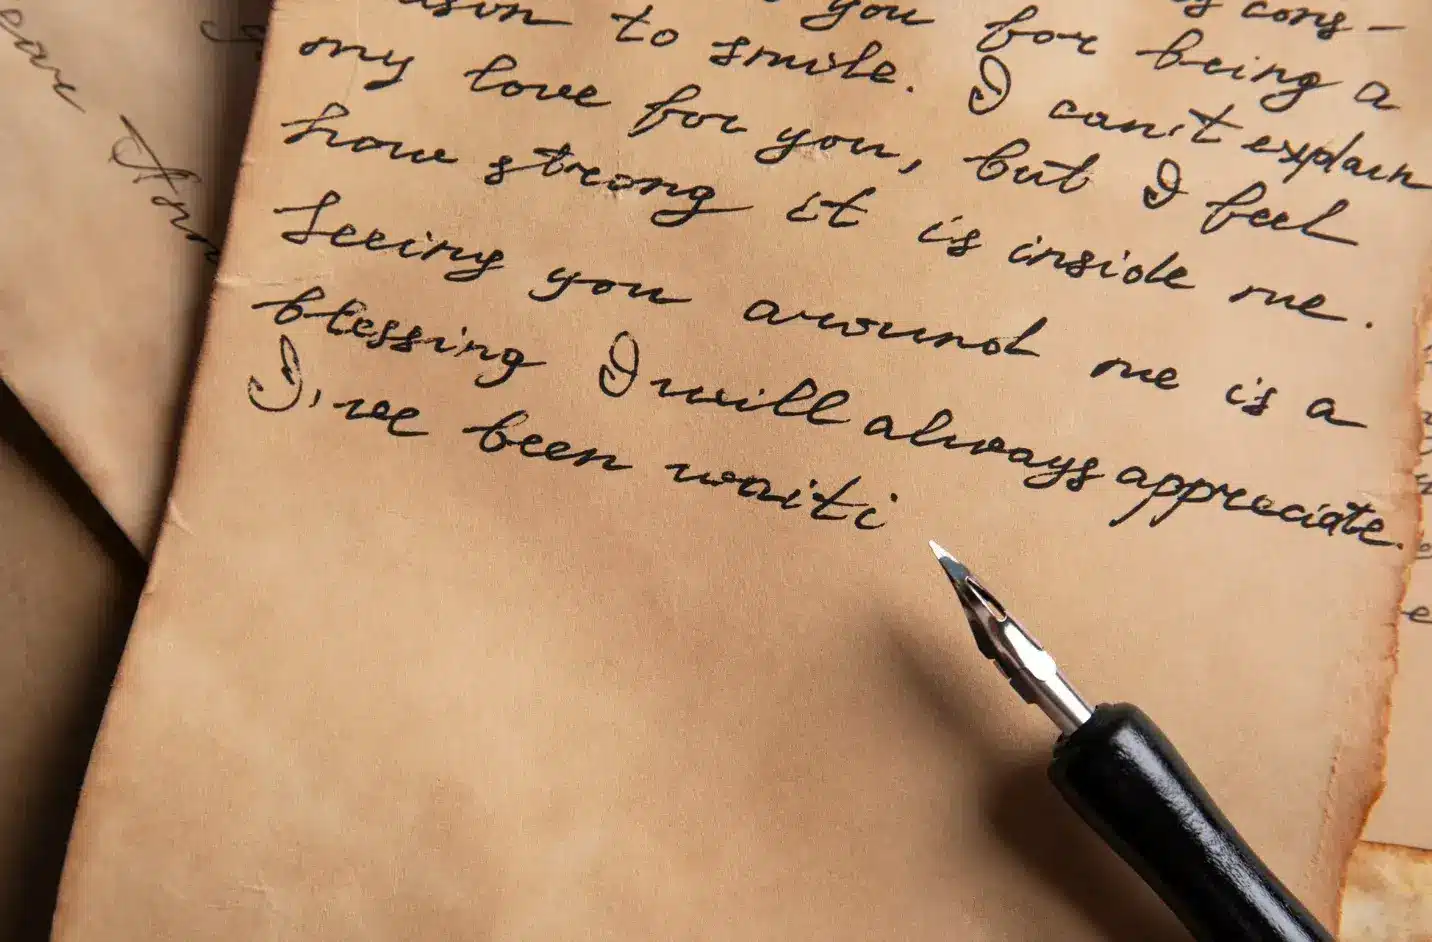 cons-
you for being a
to smile. I can't explain
my love for you, but I feel
how strong it is inside me.
Seeing you around me is a
blessing I will always appreciate.
I've been waiti